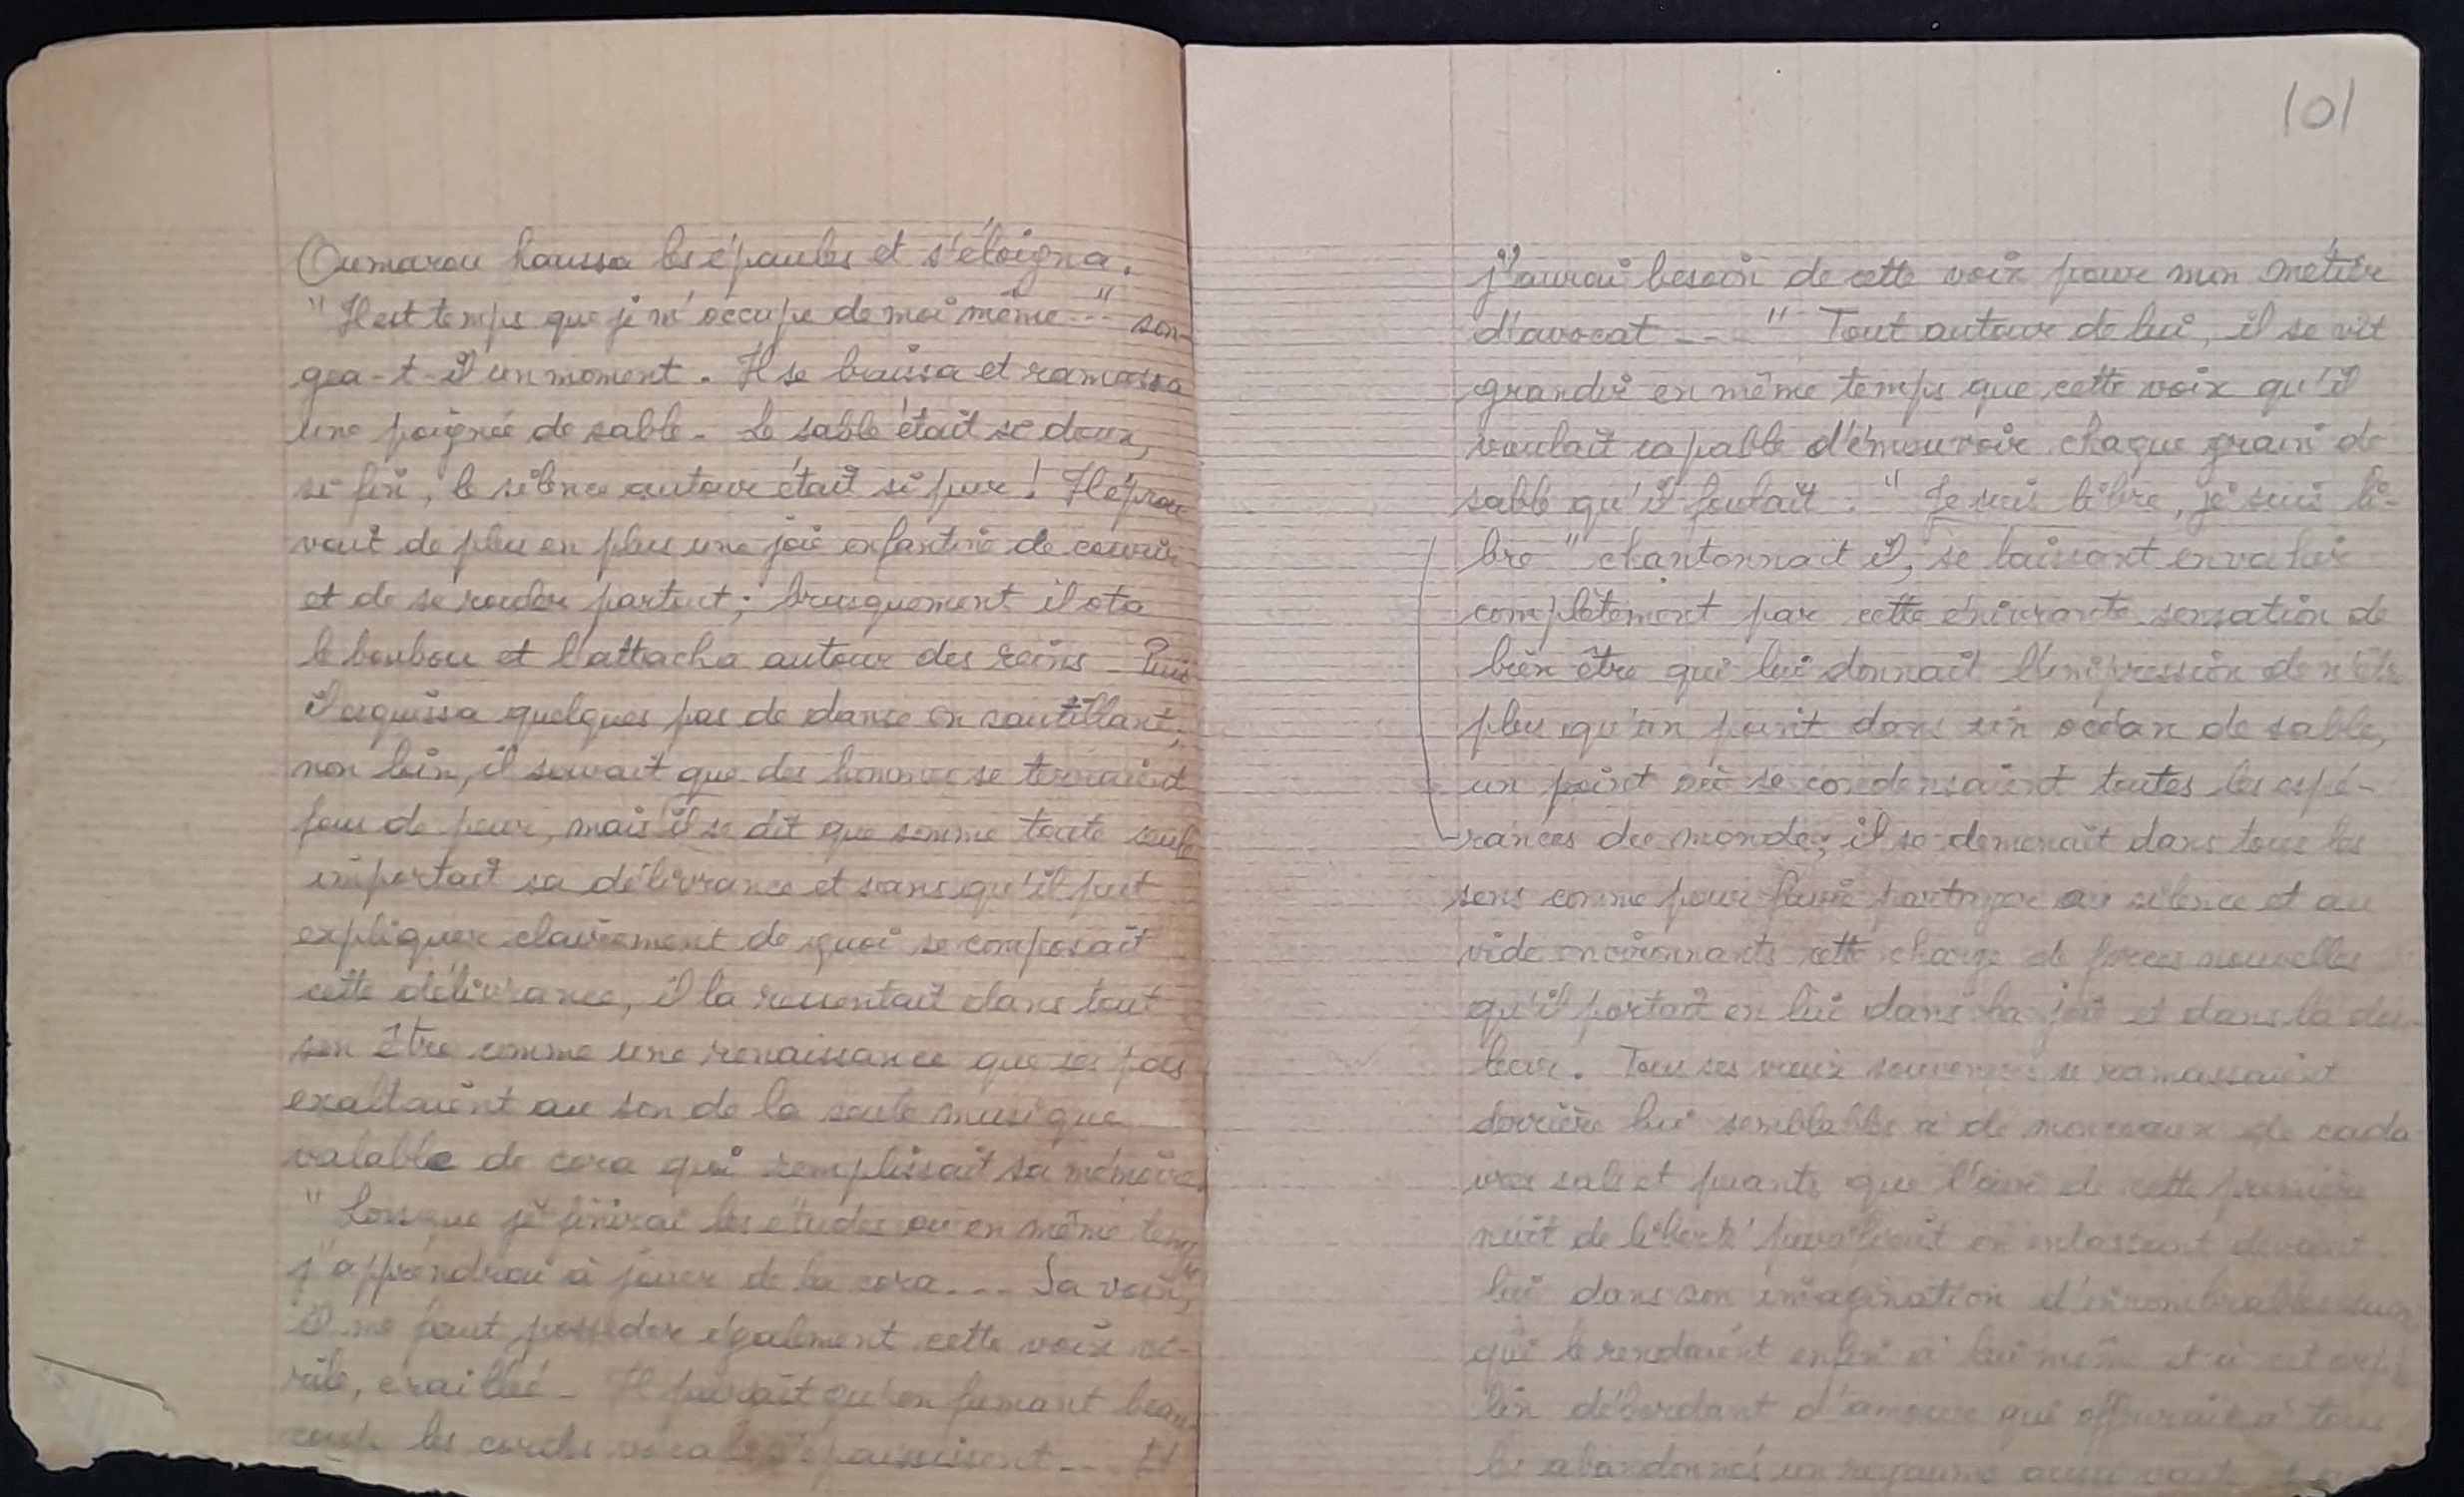 Oumarou haussa les épaules et s'éloigna.
"Il est temps que je m'occupe de moi même..." son-
gea-t-il un moment. Il se baissa et ramassa
une poignée de sable. Le sable était si doux,
si fin, le silence autour était si pur ! Il éprou
vait de plus en plus une joie enfantine de courir
et de se rouler partout ; brusquement il ota
le boubou et l'attacha autour des reins - Puis
il esquissa quelques pas de danse en sautillant ;
non loin, il savait que des hommes se terraient
fous de peur, mais il se dit que somme toute seule
importait sa délivrance et sans qu'il put
expliquer clairement de quoi se composait
cette délivrance, il la ressentait dans tout
son être comme une renaissance que ses pas
exaltaient au son de la seule musique
valable de cora qui remplissait sa mémoire.
"Lorsque je finirai les études ou en même temps
j'apprendrai à jouer de la cora... Sa voix,
il me faut posséder également cette voix vi-
rile, eraillée - Il parait qu'en fumant beau-
coup les cordes vocales s'épaississent... Et
101
j'aurai besoin de cette voix pour mon métier
d'avocat ... " Tout autour de lui, il se vit
grandir en même temps que cette voix qu'il
voulait capable d'émouvoir chaque grain de
sable qu'il foulait. "Je suis libre, je suis li-
bre" chantonnait il, se laissant envahir
complètement par cette enivrante sensation de
bien être qui lui donnait l'impression de n'être
plus qu'un point dans un océan de sable,
un point où se condensaient toutes les espé-
rances du monde ; il se demenait dans tous les
sens comme pour faire partager au silence et au
vide environnants cette charge de forces nouvelles
qu'il portait en lui dans la joie et dans la dou-
leur. Tous ses vieux souvenirs se ramassaient
derrière lui semblables à de morceaux de cada
vres sales et puants que l'air de cette première
nuit de liberté purifiait en entassant devant
lui dans son imagination d'innombrables
qui le rendaient enfin à lui même et à cet orph
lin débordant d'amour qui offrirait à tous
les abandonnés un royaume aussi vaste